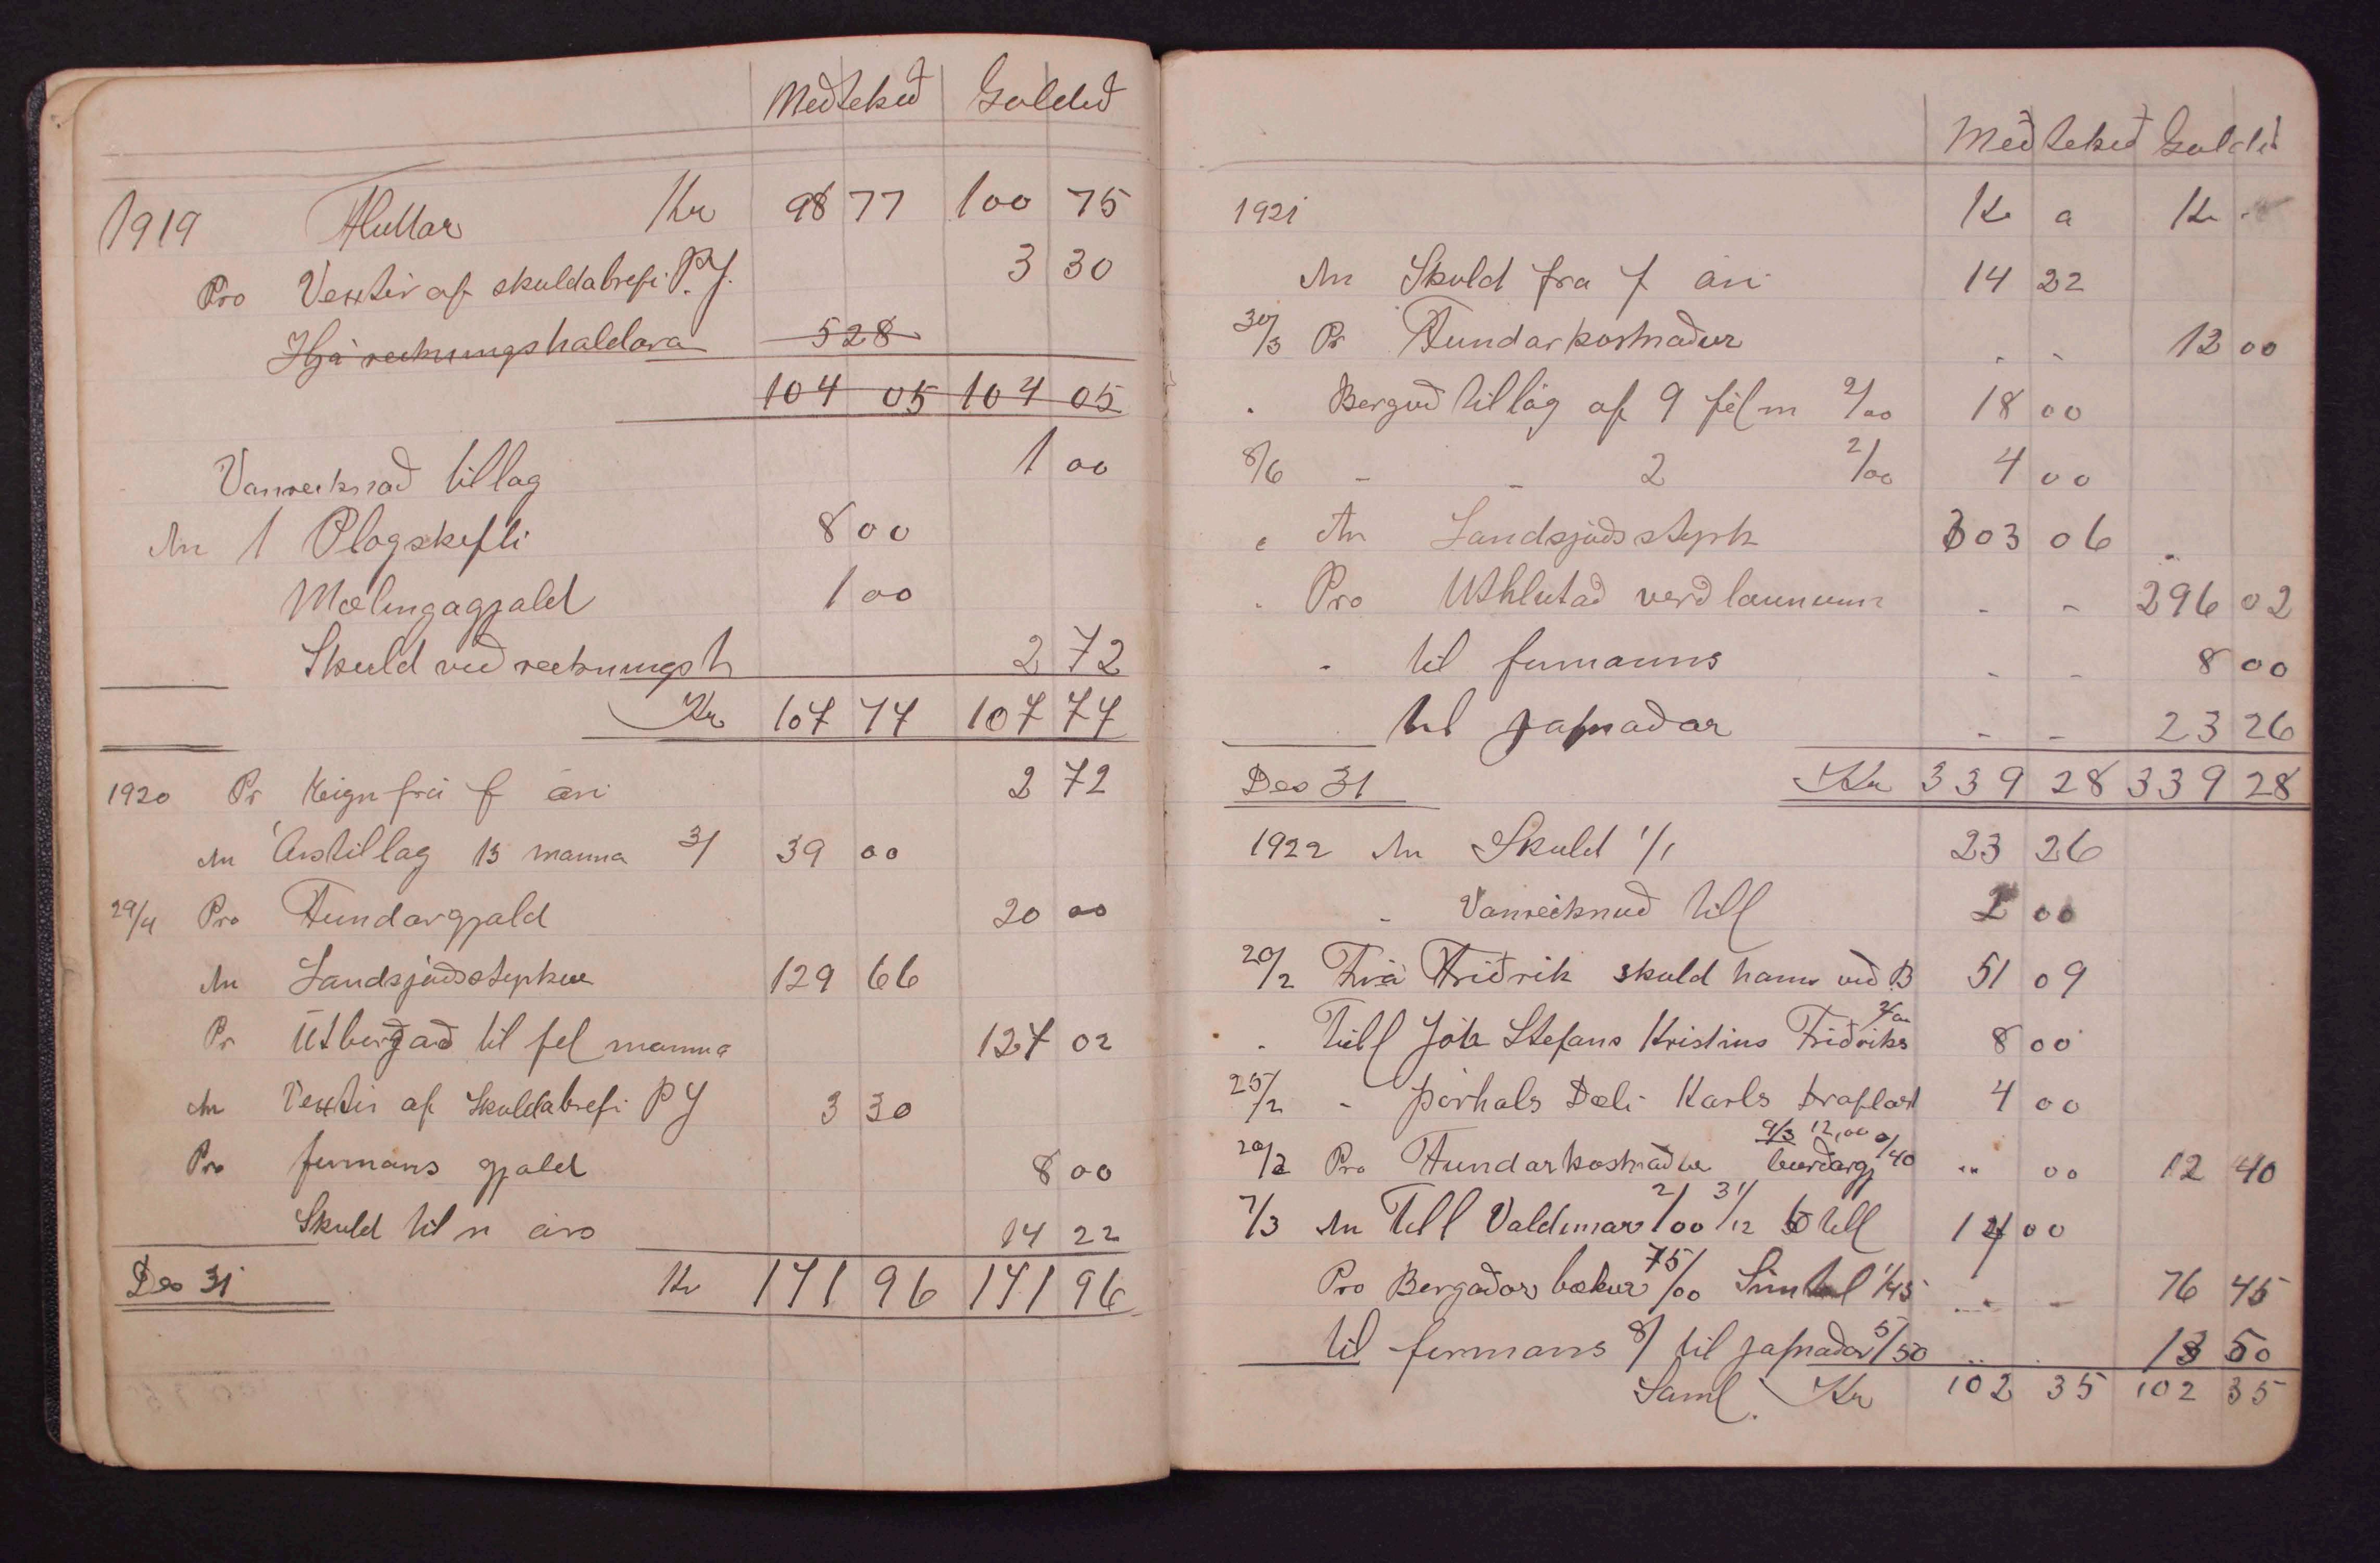 Meðtekið Goldið
1919 Fluttar Kr 98 77 100 75
Pro Vextir af skuldabrefi P.J. 3 30
Hjá reiknungshaldara 5 28
104 05 104 05
Vanreiknað tillag 1 00
An 1 Plogskefli 8 00
Mælingagjald 1 00
Skuld við reiknungsh 2 72
Kr 107 77 107 77
1920 Pr eign frá f ári 2 72
An Árstillag 13 manna 3/ 39 00
29/4 Pro Fundargjald 20 00
An Landsjóðsstyrkur 129 66
Pr Útborgað til fel manna 127 02
An Vextir af Skuldabrefi PJ 3 30
Pro furmans gjald 8 00
Skuld til n árs 14 22
Des 31 Kr 171 96 171 96
Meðtekið Goldið
1921 Kr a Kr
An Skuld fra f ári 14 22
30/3 Pr Fundarkostnaður - - 12 00
. Borguð tillög af 9 félm 2/00 18 00
8/6 - - 2 2/00 4 00
An Landsjóðsstyrk 303 06
. Pro Úthlutað verðlaunum - - 296 02
- til furmanns - - 8 00
til jafnaðar - - 23 26
Des 31 Kr 339 28 339 28
1922 An Skuld 1/1 23 26
- Vanreiknuð till 2 00
20/2 Frá Friðrik skuld hans við B 51 09
. Till Jóh Stefans Kristins Friðriks 2/00 8 00
25/2 - Þórhals Dæli Karls Draflast 4 00
9/3 12,00
20/2 Pro Fundarkostnaður burðargj 0/40 .. 00 12 40
7/3 An Till Valdimars 2/00 31/12 6 till 14 00
Pro Borgaðar bækur 75/00 Símtal 1/45 - - 76 45
til furmans 8/ til jafnaðar 5/50 .. . 13 50
Saml. Kr 102 35 102 35